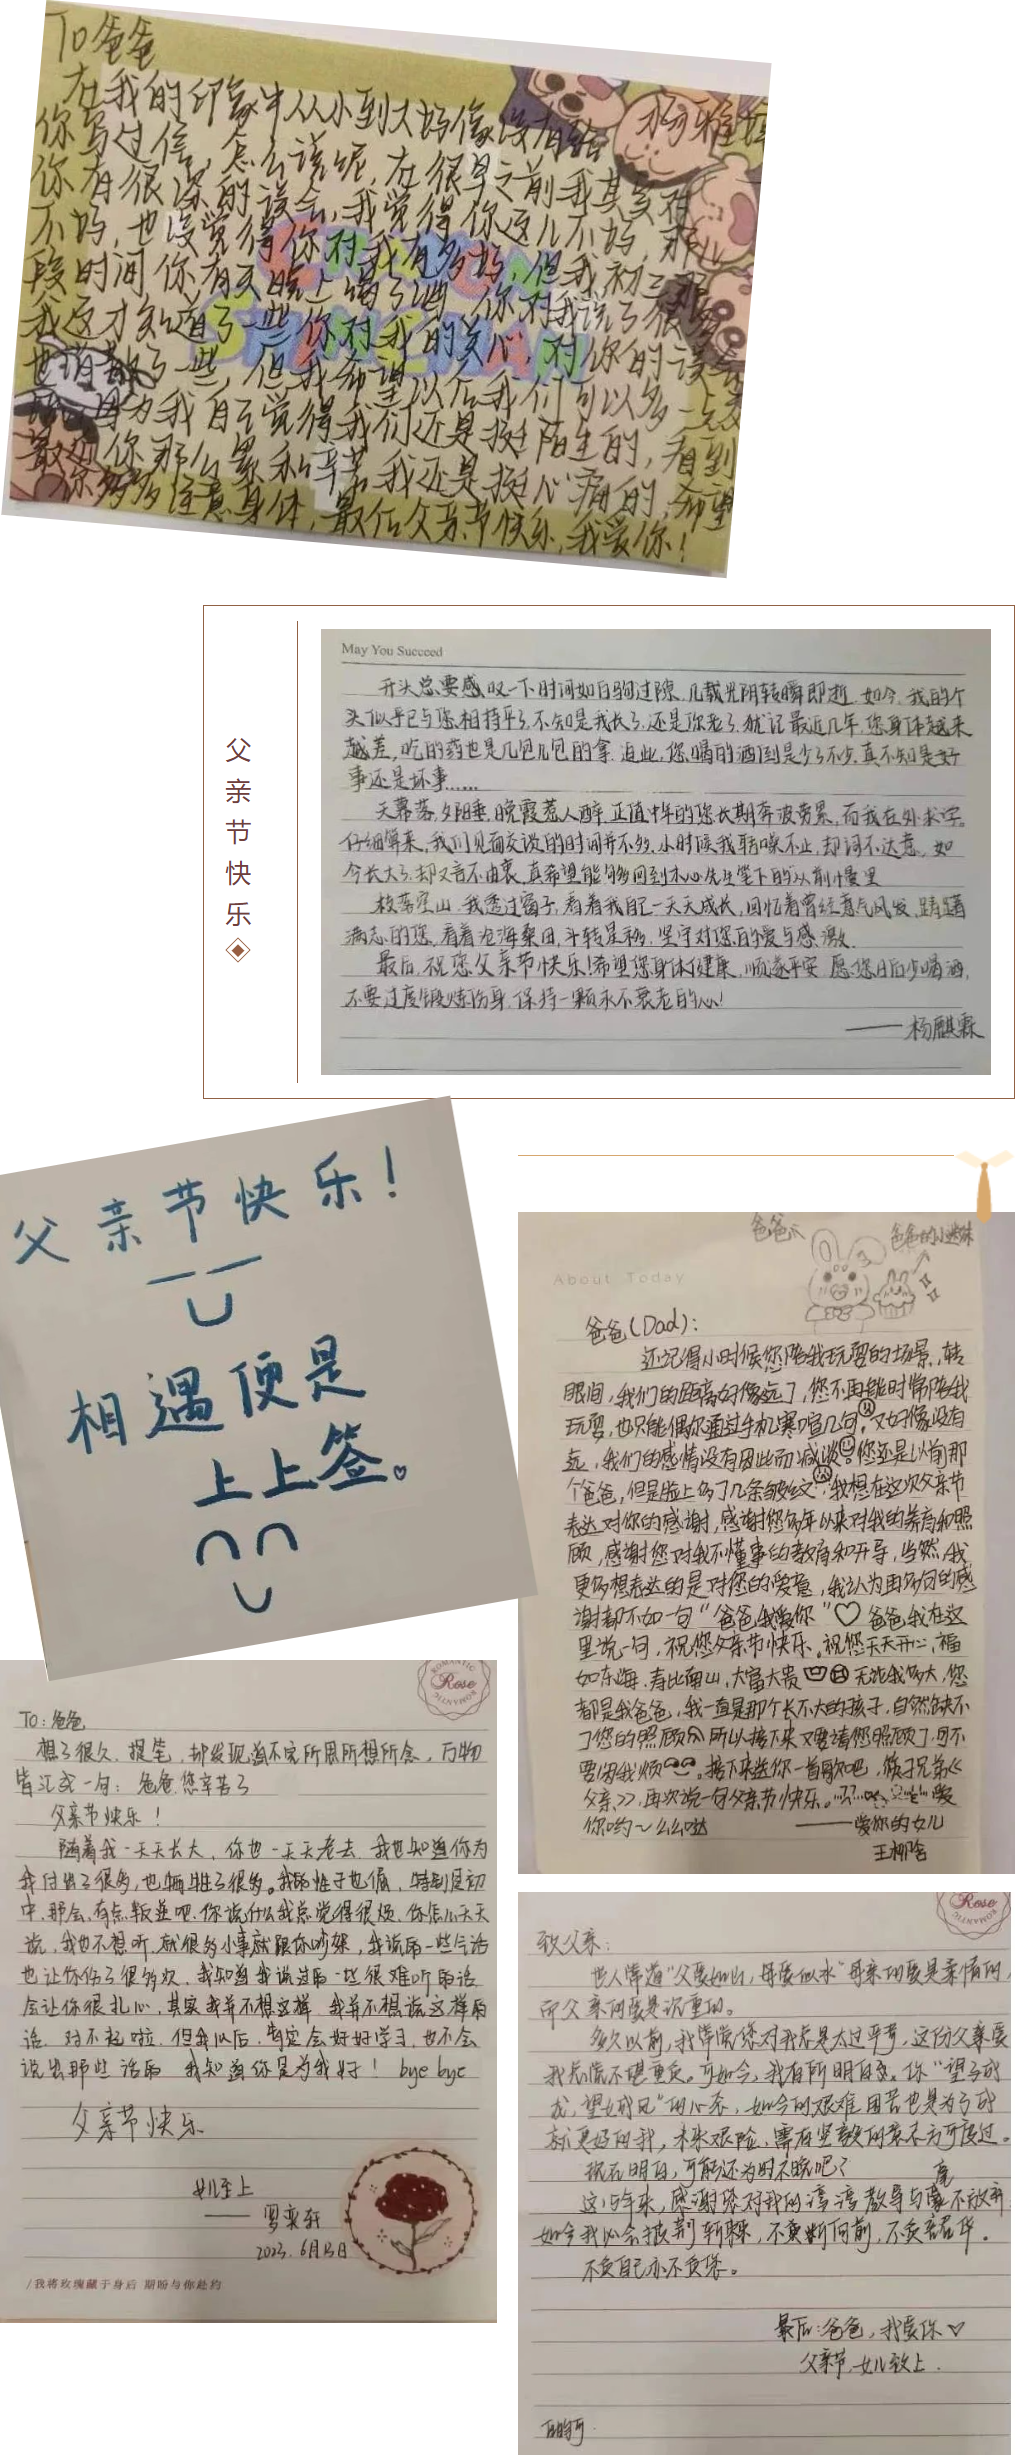 To 爸爸
在我的印象中从小到大好像没有给
你写过信，怎么说呢，在很早之前我其实对
你有很深的误会，我觉得你这儿不好，那儿
不好，也没觉得你对我有多好，但我初三那
段时间你有天晚上喝了酒，你对我说了很多
我这才知道了一些你对我的关心，对你的误会
也消散了一些，但我希望以后我们可以多一点交
因为我自己觉得我们还是挺陌生的，看到
你那么累和辛苦，我还是挺心痛的，希望
你多多注意身体，最后父亲节快乐，我爱你！
父亲节快乐
May You Succeed
开头总要感叹一下时间如白驹过隙，几载光阴转瞬即逝，如今，我的个
头似乎已与您相持平了，不知是我长了，还是你老了，犹记最近几年，您身体越来
越差，吃的药也是几包几包的拿，追此，您喝的酒倒是少了不少，真不知是好
事还是坏事……
天幕落，夕阳垂，晚霞惹人醉，正值中年的您长期奔波劳累，而我在外求学。
仔细算来，我们见面交谈的时间并不多，小时候我聒噪不止，却词不达意，如
今长大了，却又言不由衷，真希望能够回到木心先生笔下的从前慢里
枝落空山，我透过窗子，看着我自己一天天成长，回忆着曾经意气风发，踌躇
满志的您，看着沧海桑田，斗转星移，坚守对您的爱与感激
最后，祝您父亲节快乐！希望您身体健康，顺遂平安，愿您日后少喝酒，
不要过度锻炼伤身，保持一颗永不衰老的心！
——杨麒霖
父亲节快乐！
相遇便是
上上签。
爸爸
爸爸的小迷妹
About Today
爸爸(Dad)：
还记得小时候您陪我玩耍的场景，转
眼间，我们的距离好像远了，您不再能时常陪我
玩耍，也只能偶尔通过手机寒喧几句，又好像没有
远，我们的感情没有因此而减淡。您还是以前那
个爸爸，但是脸上多了几条皱纹，我想在这次父亲节
表达对你的感谢，感谢您多年以来对我的养育和照
顾，感谢您对我不懂事的教育和开导，当然，我
更多想表达的是对您的爱意，我认为再多句的感
谢都不如一句“爸爸我爱你”♡爸爸我在这
里说一句，祝您父亲节快乐。祝您天天开心，福
如东海，寿比南山，大富大贵 无论我多大，您
都是我爸爸，我一直是那个长不大的孩子，自然缺不
了您的照顾 所以接下来又要请您照顾了，可不
要闲我烦 。接下来送你一首歌吧，筷子兄弟《
父亲》，再次说一句父亲节快乐。 爱
你哟～么么哒 ——爱你的女儿
ROMANTIC
Rose
ROMANTIC
TO：爸爸
想了很久，提笔，却发现道不完所思所想所念，万物
皆汇成一句：爸爸，您辛苦了
父亲节快乐！
随着我一天天长大，你也一天天老去，我也知道你为
我付出了很多，也牺牲了很多。我的性子也倔，特别是初
中，那会，有点叛逆吧，你说什么我总觉得很烦，你怎么天天
说，我也不想听，就很多小事就跟你吵架，我说的一些气话
也让你伤了很多次，我知道我说过的一些很难听的话
会让你很扎心，其实我并不想这样，我并不想说这样的
话，对不起啦，但我以后，肯定会好好学习，也不会
说出那些话的，我知道你是为我好！bye bye
父亲节快乐
女儿至上
——罗奕轩
2023.6月13日
/我将玫瑰藏于身后 期盼与你赴约
Rose
ROMANTIC
致父亲：
世人常道“父爱如山，母爱似水”母亲的爱是柔情的，
而父亲的爱是沉重的。
多久以前，我常觉您对我总是太过严苛，这份父亲爱
我总慌不堪重负。可如今，我有所明白。你“望子成
龙，望女成凤”的心态，如今的艰难困苦也是为了成
就更好的我，未来艰险，需有坚毅的意志方可度过。
现在明白，可能还为时不晚吧？
这15年来，感谢您对我的谆谆教导与毫不放弃
如今我必会披荆斩棘，不负断何前，不负韶华。
不负自己亦不负您。
最后：爸爸，我爱你♡
父亲节，女儿敬上.